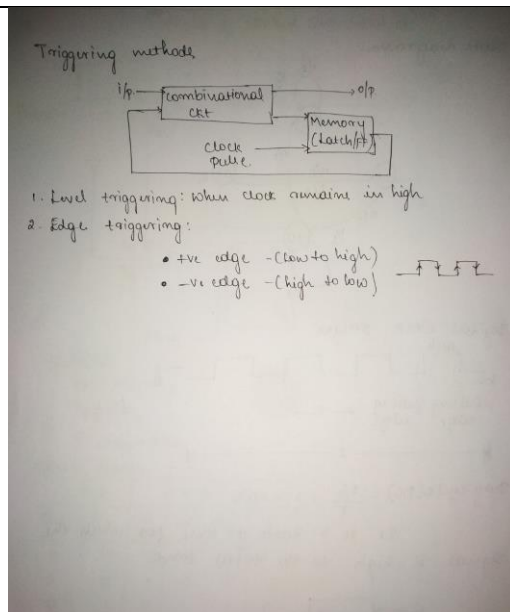 Triggering methods
i/p
combinational
ckt
o/p
Memory
(Latch/ff)
clock
pulse
1. Level triggering: When clock remains in high
2. Edge triggering:
• +ve edge - (Low to high)
• -ve edge - (high to low)